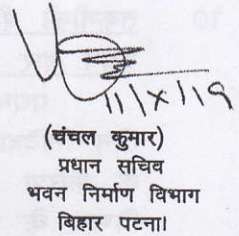 11/X/19
(चंचल कुमार)
प्रधान सचिव
भवन निर्माण विभाग
बिहार पटना।